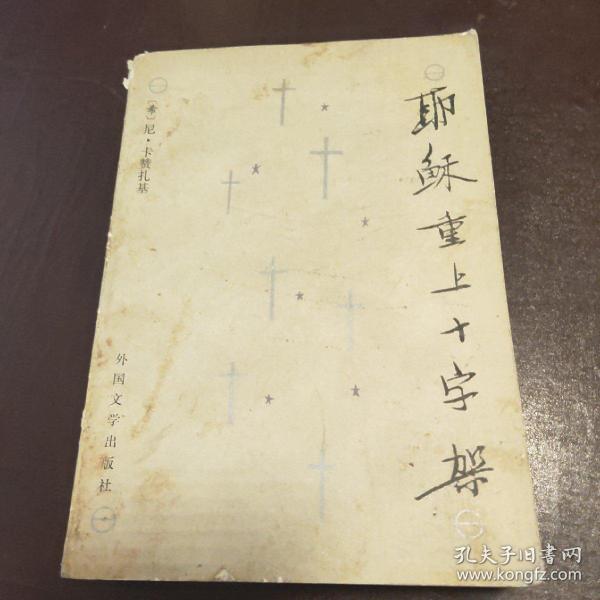 耶稣重上十字架
〔希〕尼·卡赞扎基
外国文学出版社
孔夫子旧书网
www.kongfz.com